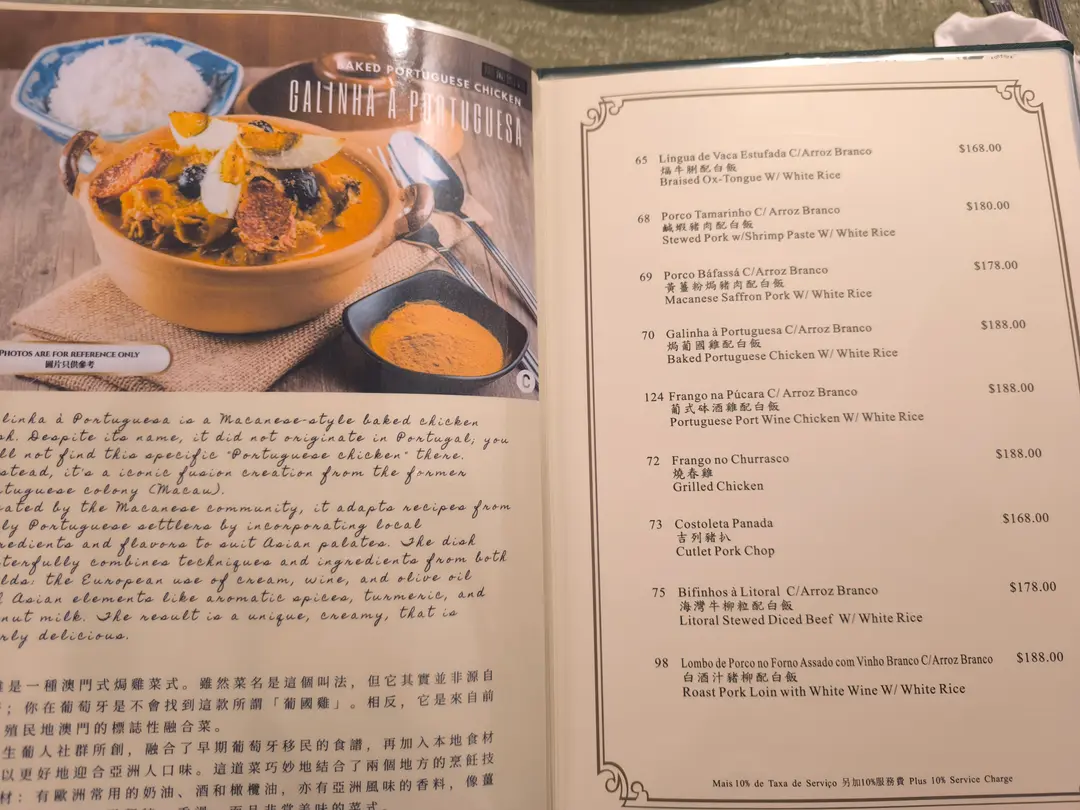 BAKED PORTUGUESE CHICKEN
GALINHA À PORTUGUESA
PHOTOS ARE FOR REFERENCE ONLY
圖片只供參考
Portuguesa is a Macanese-style baked chicken
Despite its name, it did not originate in Portugal; you
not find this specific "Portuguese chicken" there.
it's a iconic fusion creation from the former
colony (Macau).
by the Macanese community, it adapts recipes from
Portuguese settlers by incorporating local
and flavors to suit Asian palates. The dish
combines techniques and ingredients from both
the European use of cream, wine, and olive oil
Asian elements like aromatic spices, turmeric, and
milk. The result is a unique, creamy, that is
delicious.
是一種澳門式焗雞菜式。雖然菜名是這個叫法，但它其實並非源自
；你在葡萄牙是不會找到這款所謂「葡國雞」。相反，它是來自前
殖民地澳門的標誌性融合菜。
生葡人社群所創，融合了早期葡萄牙移民的食譜，再加入本地食材
以更好地迎合亞洲人口味。這道菜巧妙地結合了兩個地方的烹飪技
材：有歐洲常用的奶油、酒和橄欖油，亦有亞洲風味的香料，像薑
而且非常美味的菜式。
65 Língua de Vaca Estufada C/Arroz Branco $168.00
煀牛脷配白飯
Braised Ox-Tongue W/ White Rice
68 Porco Tamarinho C/ Arroz Branco $180.00
鹹蝦豬肉配白飯
Stewed Pork w/Shrimp Paste W/ White Rice
69 Porco Báfassá C/Arroz Branco $178.00
黃薑粉焗豬肉配白飯
Macanese Saffron Pork W/ White Rice
70 Galinha à Portuguesa C/Arroz Branco $188.00
焗葡國雞配白飯
Baked Portuguese Chicken W/ White Rice
124 Frango na Púcara C/ Arroz Branco $188.00
葡式砵酒雞配白飯
Portuguese Port Wine Chicken W/ White Rice
72 Frango no Churrasco $188.00
燒春雞
Grilled Chicken
73 Costoleta Panada $168.00
吉列豬扒
Cutlet Pork Chop
75 Bifinhos à Litoral C/Arroz Branco $178.00
海灣牛柳粒配白飯
Litoral Stewed Diced Beef W/ White Rice
98 Lombo de Porco no Forno Assado com Vinho Branco C/Arroz Branco $188.00
白酒汁豬柳配白飯
Roast Pork Loin with White Wine W/ White Rice
Mais 10% de Taxa de Serviço 另加10%服務費 Plus 10% Service Charge